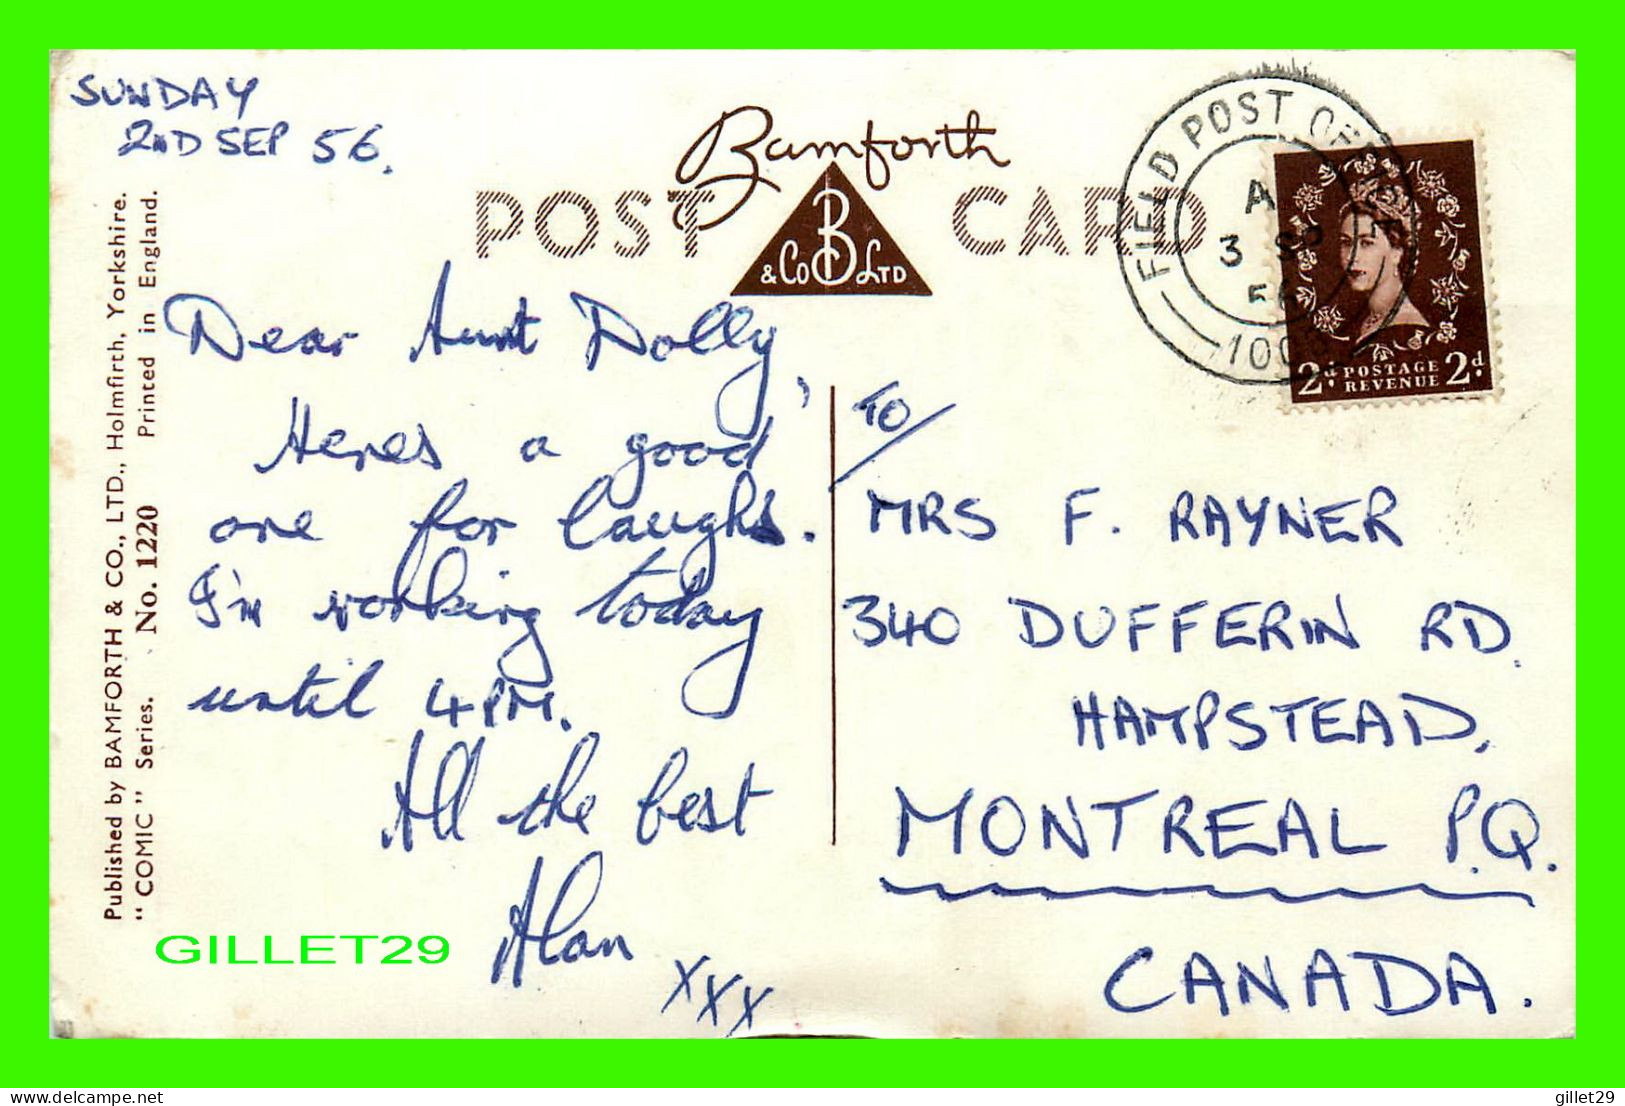 SUNDAY
2ND SEP 56.
Bamforth
POST CARD
B
& Co LTD
FIELD POST OFFICE
A
3 SP
56
2d. POSTAGE 2d.
REVENUE
Published by BAMFORTH & CO., LTD., Holmfirth, Yorkshire.
"COMIC" Series. No. 1220 Printed in England.
Dear Aunt Dolly,
Heres a good
one for laughs.
I'm working today
until 4 PM.
All the best
Alan
xxx
TO/
MRS F. RAYNER
340 DUFFERIN RD.
HAMPSTEAD,
MONTREAL P.Q.
CANADA.
GILLET29
www.delcampe.net
gillet29